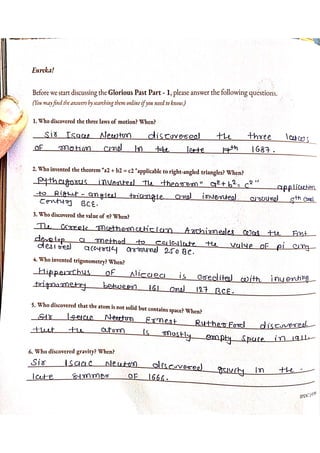 Eureka!
Before we start discussing the Glorious Past Part - 1, please answer the following questions.
(You may find the answers by searching them online if you need to know.)
1. Who discovered the three laws of motion? When?
Sir Isaac Newton discovered the three laws
OF motion and In the late 17th 1687.
2. Who invented the theorem "a2 + b2 = c2 "applicable to right-angled triangles? When?
Pythagorus invented The theorem" a2+b2=c2" application
to Right-angled triangle and invented around 5th cent
Century BCE.
3. Who discovered the value of π? When?
The Greek mathematician Archimedes was the First
develop a method to calculate the value of pi any
desired accuracy around 250 BC.
4. Who invented trigonometry? When?
Hipparchus of Nicaea is credited with inventing
trigonometry between 161 and 127 BCE.
5. Who discovered that the atom is not solid but contains space? When?
Sir Isaac Newton Ernest Rutherford discovered
that the atom is mostly empty space in 1911.
6. Who discovered gravity? When?
Sir Isaac Newton discovered gavity in the
late summer OF 1666.